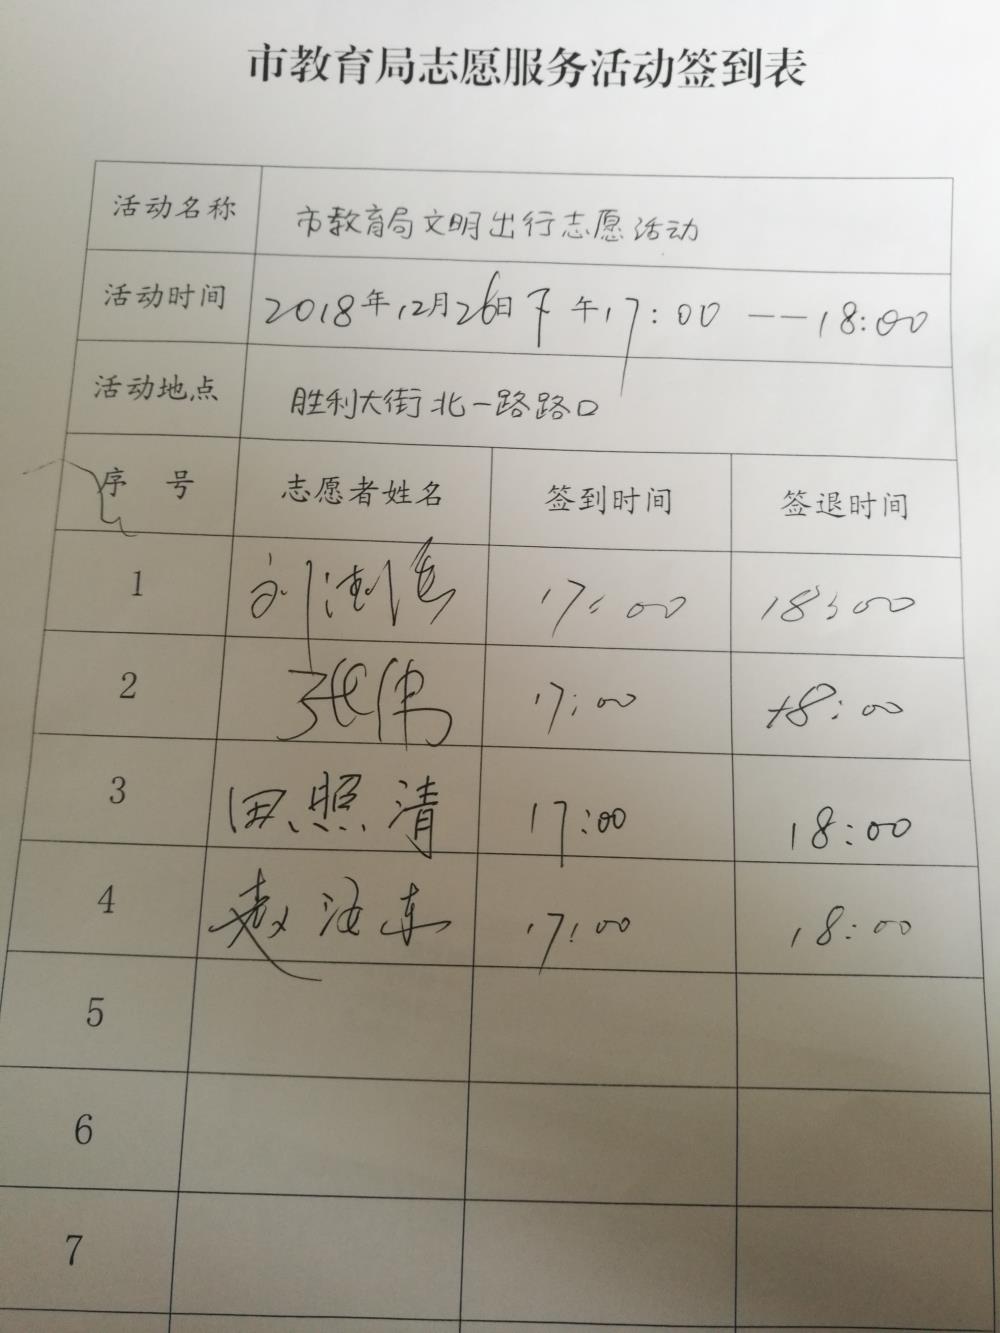 市教育局志愿服务活动签到表
活动名称 市教育局文明出行志愿活动
活动时间 2018年12月26日下午17:00 --18:00
活动地点 胜利大街北一路路口
序 号 志愿者姓名 签到时间 签退时间
1 刘 17:00 18:00
2 张伟 17:00 18:00
3 田照清 17:00 18:00
4 赵海东 17:00 18:00
5
6
7